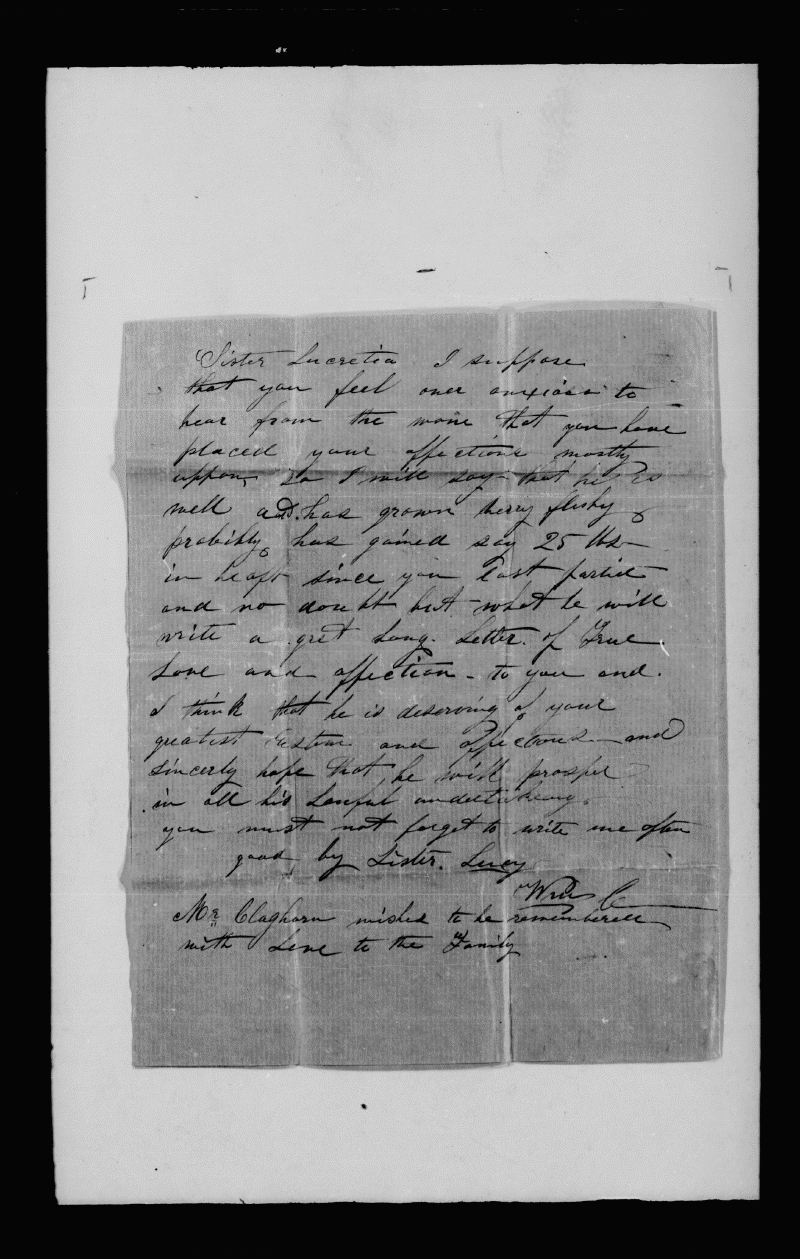 Sister Lucretia I suppose
that you feel over anxious to
hear from the one that you have
placed your affections mostly
uppon, So I will say that he is
well and has grown verry fleshy
probibly has gained say 25 lbs
in heaft since you last parted
and no doubt but what he will
write a gret Long Letter of True
Love and affection - to you and.
I think that he is deserving of your
greatist Esteem and affections and
sincerly hope that he will prosper
in all his Lawful undertakings
you must not forget to write me often
good by Sister Lucy
Wm C
Mr Claghorn wished to be rememberell
with Love to the Family